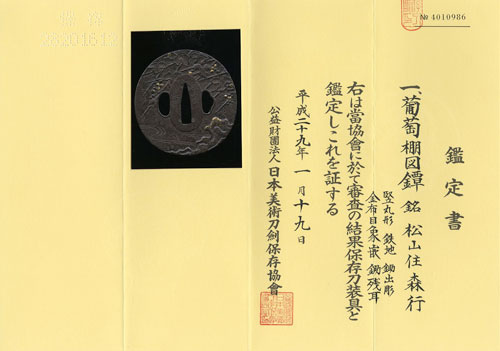 № 4010986
鑑定書
一、葡萄棚図鐔 銘 松山住森行
竪丸形 鉄地 鋤出彫
金布目象嵌 鋤残耳
右は當協會に於て審査の結果保存刀装具と
鑑定しこれを証する
平成二十九年一月十九日
公益財團法人 日本美術刀劍保存協會